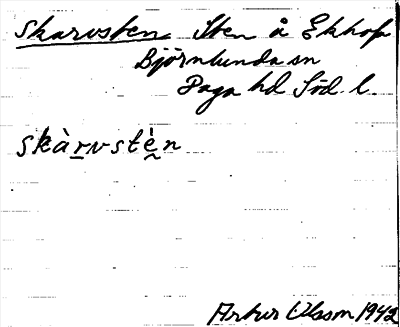 Skarvsten Sten å Ekhof
Björnlunda sn
Daga hd Söd l.
skàrvstèn
Artur Olsson 1942